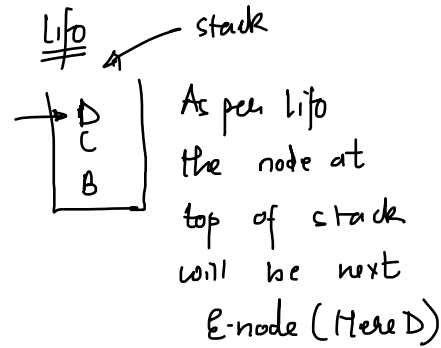 Lifo
stack
D
C
B
As per lifo
the node at
top of stack
will be next
E-node (Here D)